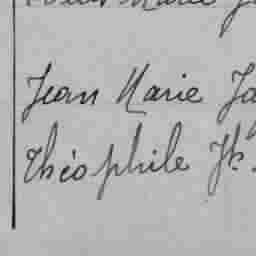 Marie
Jean Marie
Théophile Jh.